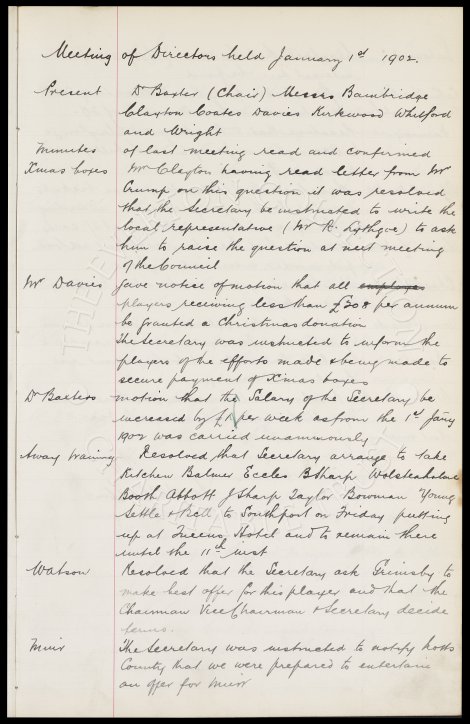 Meeting of Directors held January 1st 1902.
Present Dr Baxter (Chair) Messrs Bainbridge
Clayton Coates Davies Kirkwood Whitford
and Wright
Minutes of last meeting read and confirmed
Xmas boxes Mr Clayton having read letter from Mr
Crump on this question it was resolved
that the Secretary be instructed to write the
local representative (Mr R. Lythgoe) to ask
him to raise the question at next meeting
of the Council
Mr Davies gave notice of motion that all employes
players receiving less than £208 per annum
be granted a Christmas donation
The Secretary was instructed to inform the
players of the efforts made & being made to
secure payment of Xmas boxes
Dr Baxters motion that the Salary of the Secretary be
increased by £1 per week as from the 1st Jany
1902 was carried unanimously
Away training Resolved that Secretary arrange to take
Kitchen Balmer Eccles B Sharp Wolstenholme
Booth Abbott J Sharp Taylor Bowman Young
Settle & Bell to Southport on Friday putting
up at Queens Hotel and to remain there
until the 11th inst
Watson Resolved that the Secretary ask Grimsby to
make best offer for this player and that the
Chairman Vice Chairman & Secretary decide
terms.
Muir The Secretary was instructed to notify Notts
County that we were prepared to entertain
an offer for Muir